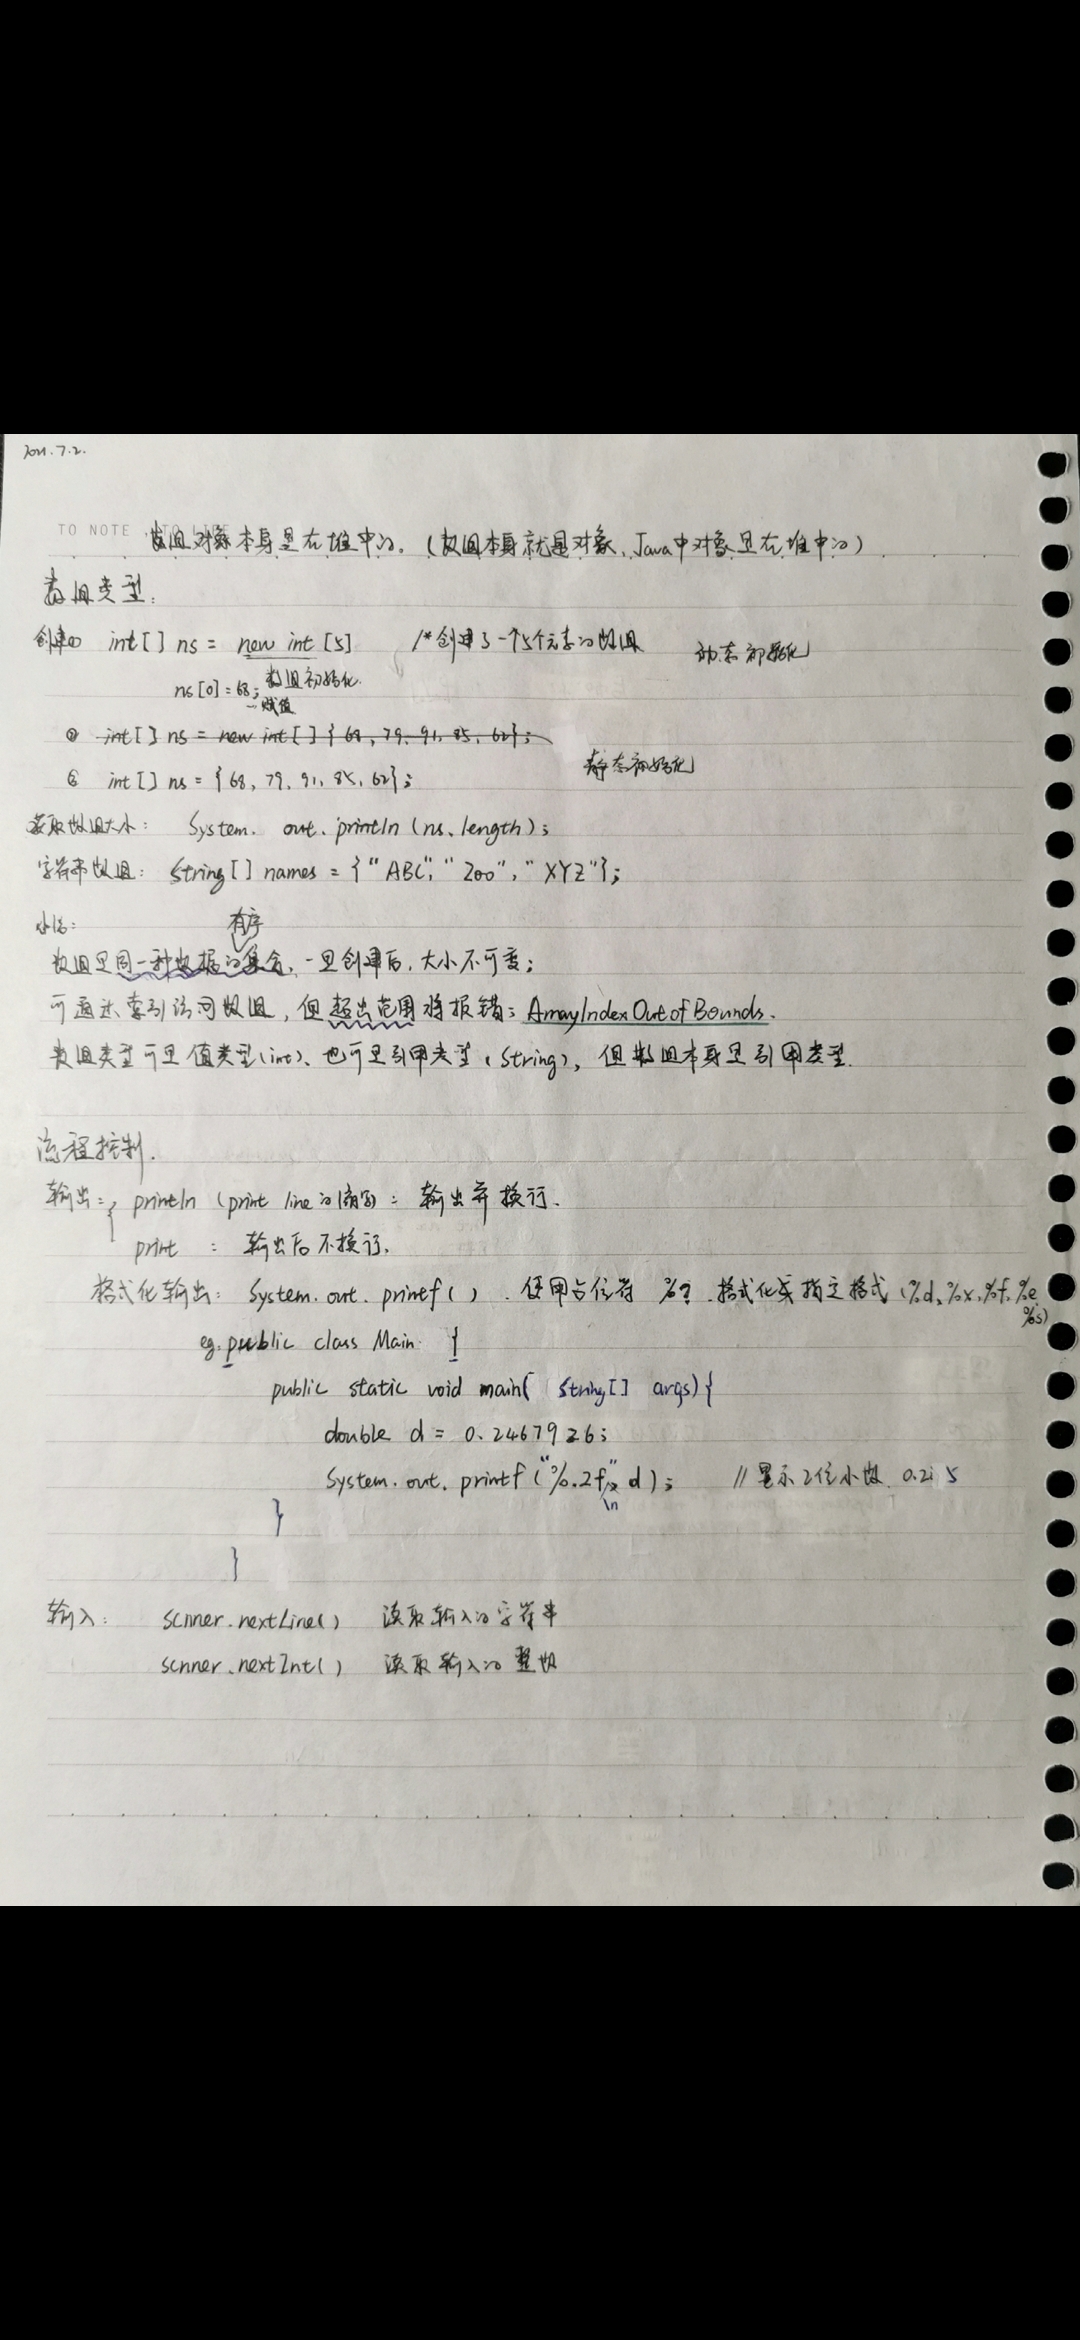 2021.7.2.
TO NOTE
数组对象本身是在堆中的.（数组本身就是对象、Java中对象是在堆中的）
数组类型:
创建① int[] ns = new int [5] /*创建了一个5个元素的数组 动态初始化
ns[0]=68; 数组初始化.
赋值
② int[] ns = new int[] {68, 79, 91, 85, 62};
静态初始化
③ int[] ns = {68, 79, 91, 85, 62};
获取数组大小: System. out. println (ns. length);
字符串数组: String[] names = {"ABC", "zoo", "XYZ"};
小结: 有序
数组是同一种数据的集合, 一旦创建后, 大小不可变;
可通过索引访问数组, 但超出范围将报错: ArrayIndexOutofBounds.
数组类型可是值类型(int)、也可是引用类型(String), 但数组本身是引用类型.
流程控制.
输出: { println (print line的缩写): 输出并换行.
print : 输出后不换行.
格式化输出: System. out. printf( ) . 使用占位符 %? . 格式化成指定格式 (%d, %x, %f, %e
%s)
eg. public class Main {
public static void main( String[] args) {
double d = 0.2467926;
System. out. printf ("%.2f" d); //显示2位小数 0.25
\n
}
}
输入: scnner.nextLine() 读取输入的字符串
scnner.nextInt() 读取输入的整数